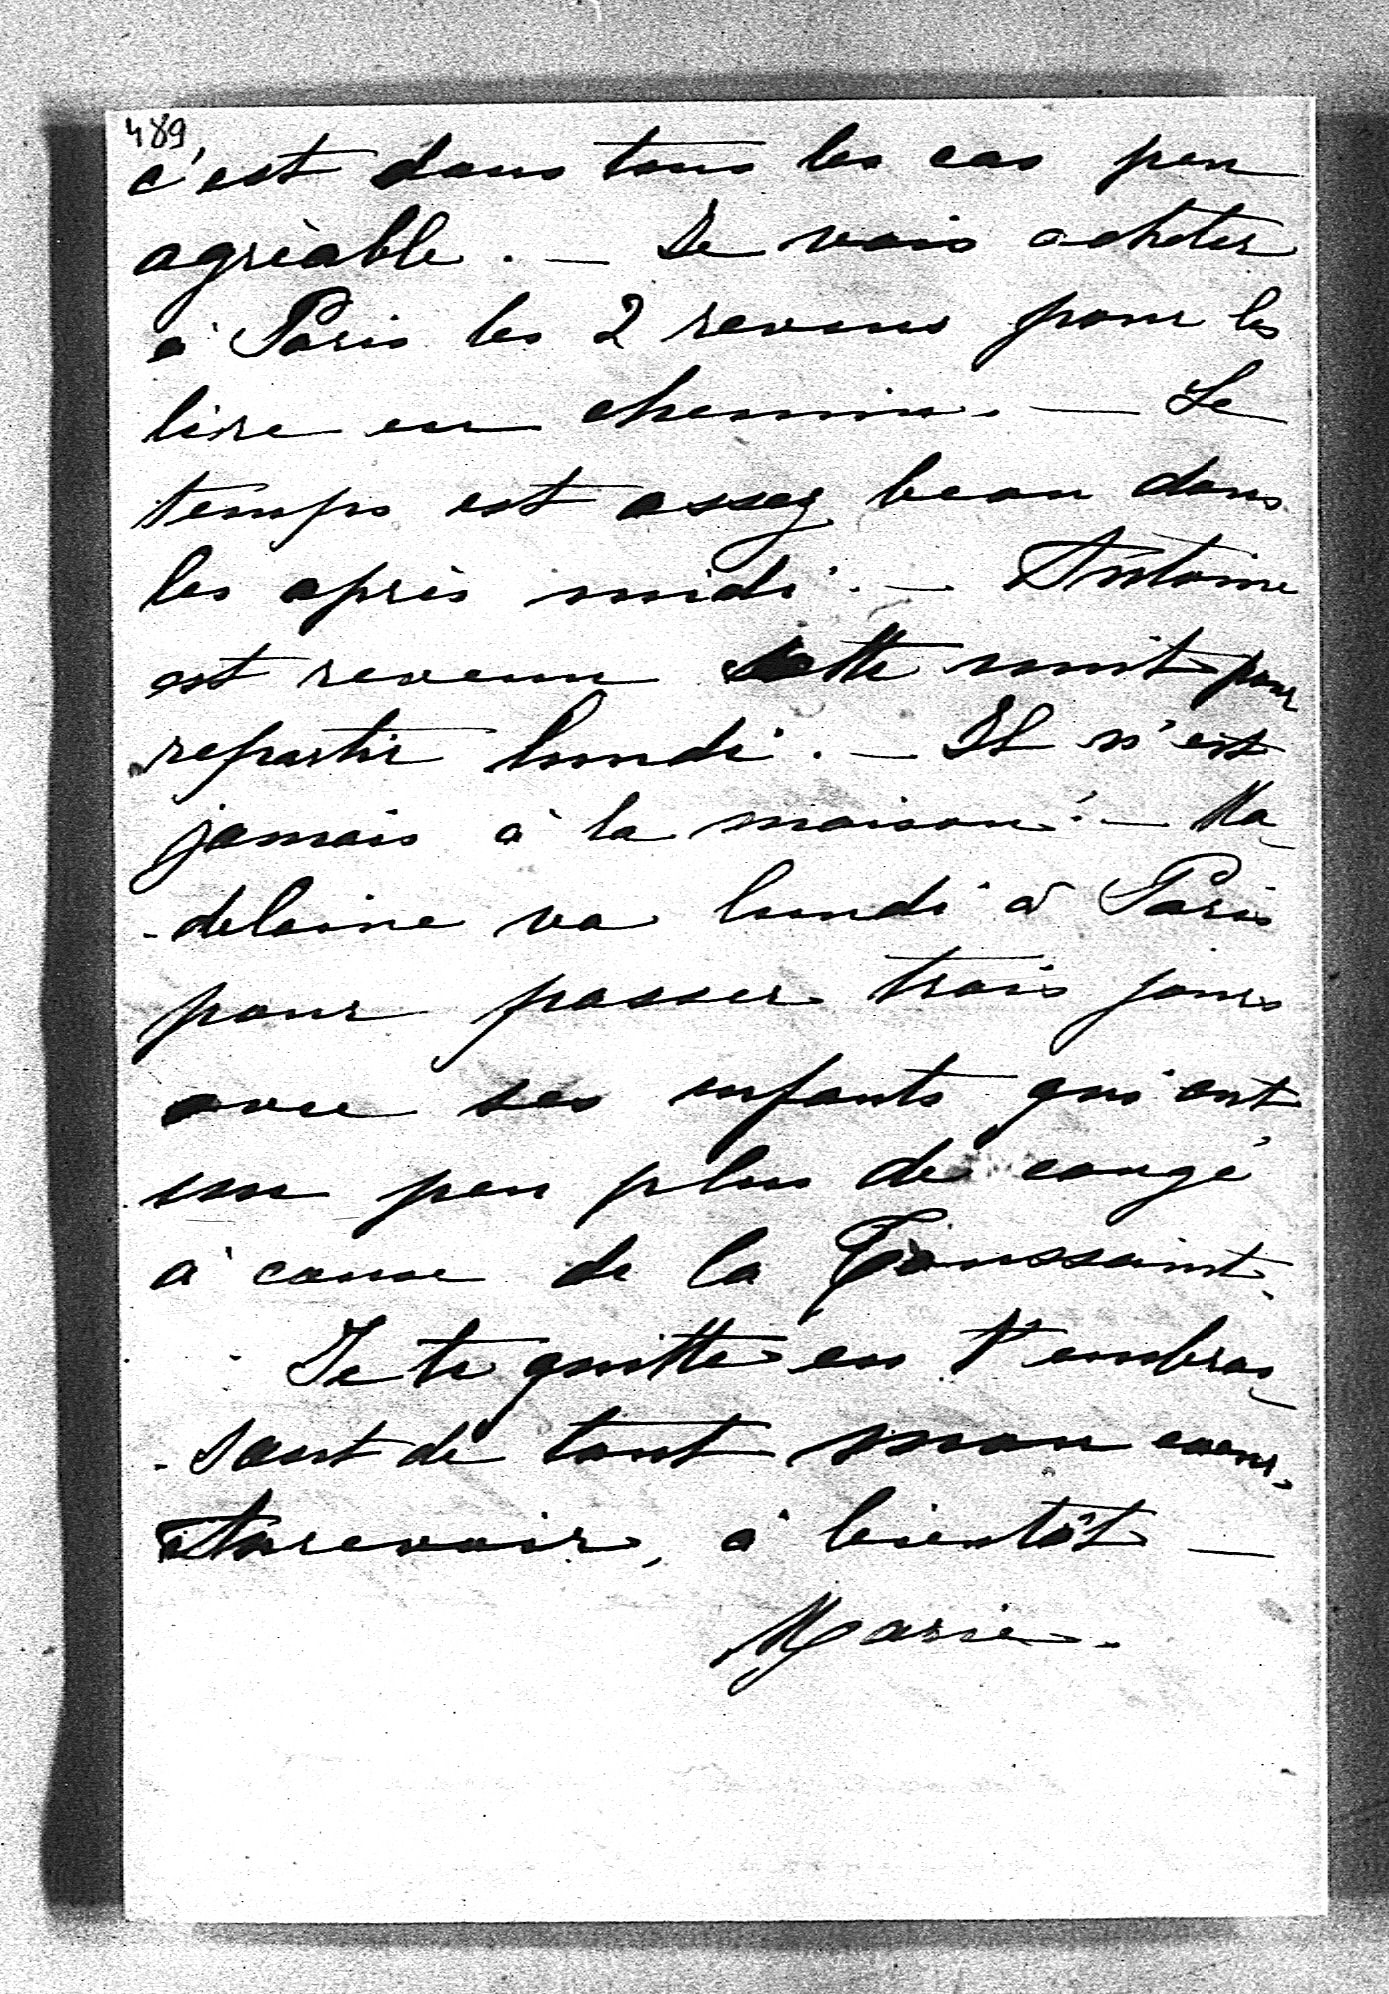 489
c'est dans tous les cas peu
agréable. — Je vais acheter
à Paris les 2 revues pour les
lire en chemin. — Le
temps est assez beau dans
les après midi. — Antoine
est revenu cette nuit pour
repartir lundi. — Il n'est
jamais à la maison! — Ma-
-delaine va lundi à Paris
pour passer trois jours
avec ses enfants qui ont
un peu plus de congé
à cause de la Toussaint.
Je te quitte en t'embras-
-sant de tout mon coeur.
Aurevoir, à bientôt —
Marie.